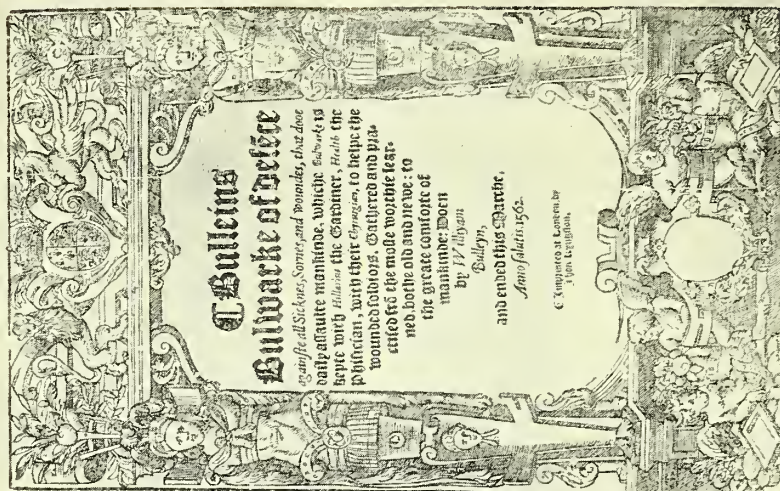 ¶ Bulleins
Bulwarke of Defēce
againste all Sicknes, Sornes, and woundes, that dooe
daily assaulte mankinde, whiche Bulwarke is
kepte with Hillarius the Gardiner, Health the
Phisician, with their Chyrurgian, to helpe the
wounded soldiors. Gathered and prac-
tised frō the moste worthie lear-
ned, bothe old and newe: to
the greate comforte of
mankinde: Doen
by Williyam
Bulleyn,
and ended this Marche,
Anno salutis 1562.
¶ Imprinted at London, by
Jhon Kyngston.